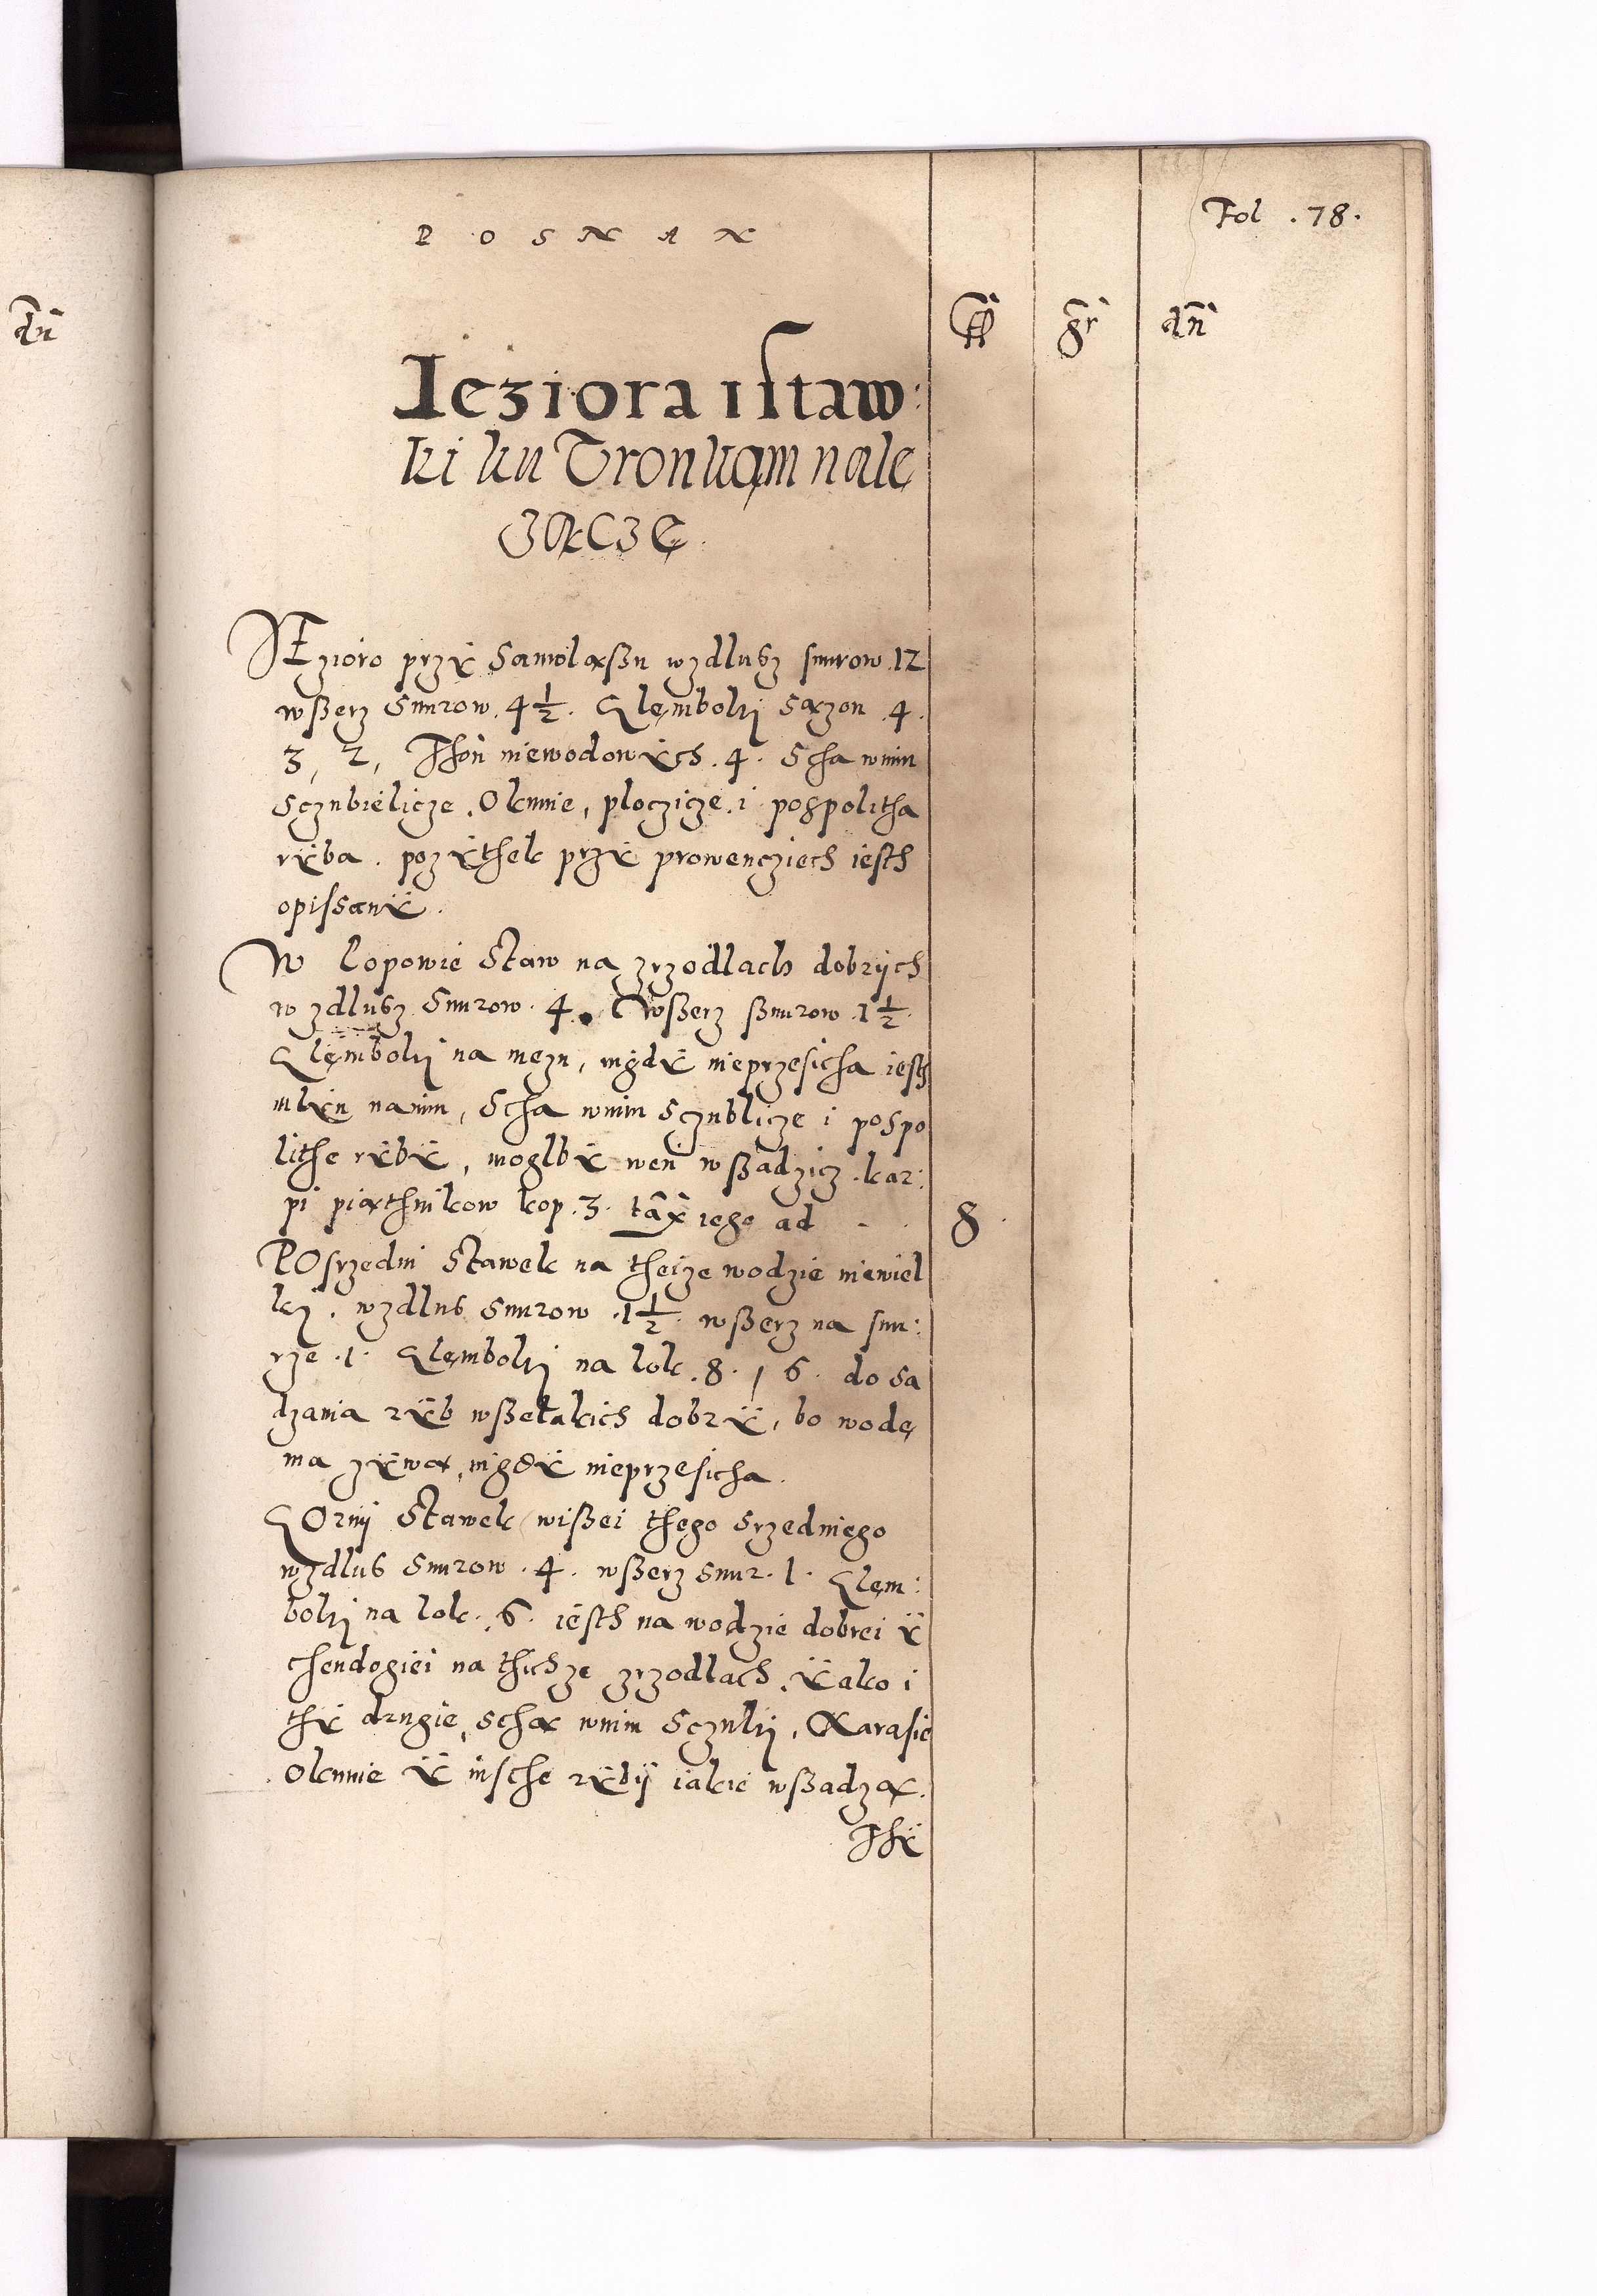 POSNAN
Fol .78.
dñ
fl gr dñ
Ieziora i staw:
ki ku Wronkąm nale
żącze.
IEzioro przÿ Samolążu wzdlusz snurow 12
wszerz Snurow 4 1/2. Glęmboki Sązon .4.
3, 2, Thoń niewodowÿch .4. Scha wnim
Sczubielicze. Okunie, ploczicze. i pospolitha
rÿba. pozÿthek przÿ prowencziech iesth
opissanÿ.
W Lopowie Staw na zrzodlach dobrych
wzdlusz Snurow 4. Wszerz sznurow 1 1/2.
Glęmboki na męzu, nigdÿ nieprzesicha iesth
mlÿn nanim, Scha wnim Sczublicze i pospo
lithe rÿbÿ, moglbÿ weń wszadzicz kar:
pi piąthnikow kop. 3. tax iego ad - . 8.
POsrzedni Stawek na theize wodzie niewiel
ki. wzdlus Snurow 1 1/2. wszerz na snu:
rze .1. Glęmboki na lok .8. / 6. do sa
dzania rÿb wszelakich dobrÿ, bo wodę
ma zÿwą, nigdÿ nieprzesicha.
GOrny Stawek wiszei thego Srzedniego
wzdlus Snurow .4. wszerz snur .1. Glęm:
boki na lok. 6. iesth na wodzie dobrei ÿ
chendogiei na thichze zrzodlach, ÿako i
thÿ drugie, Schą wnim Sczuki, Karasie
Okunie ÿ insche rÿbÿ iakie wszadzą.
Thÿ